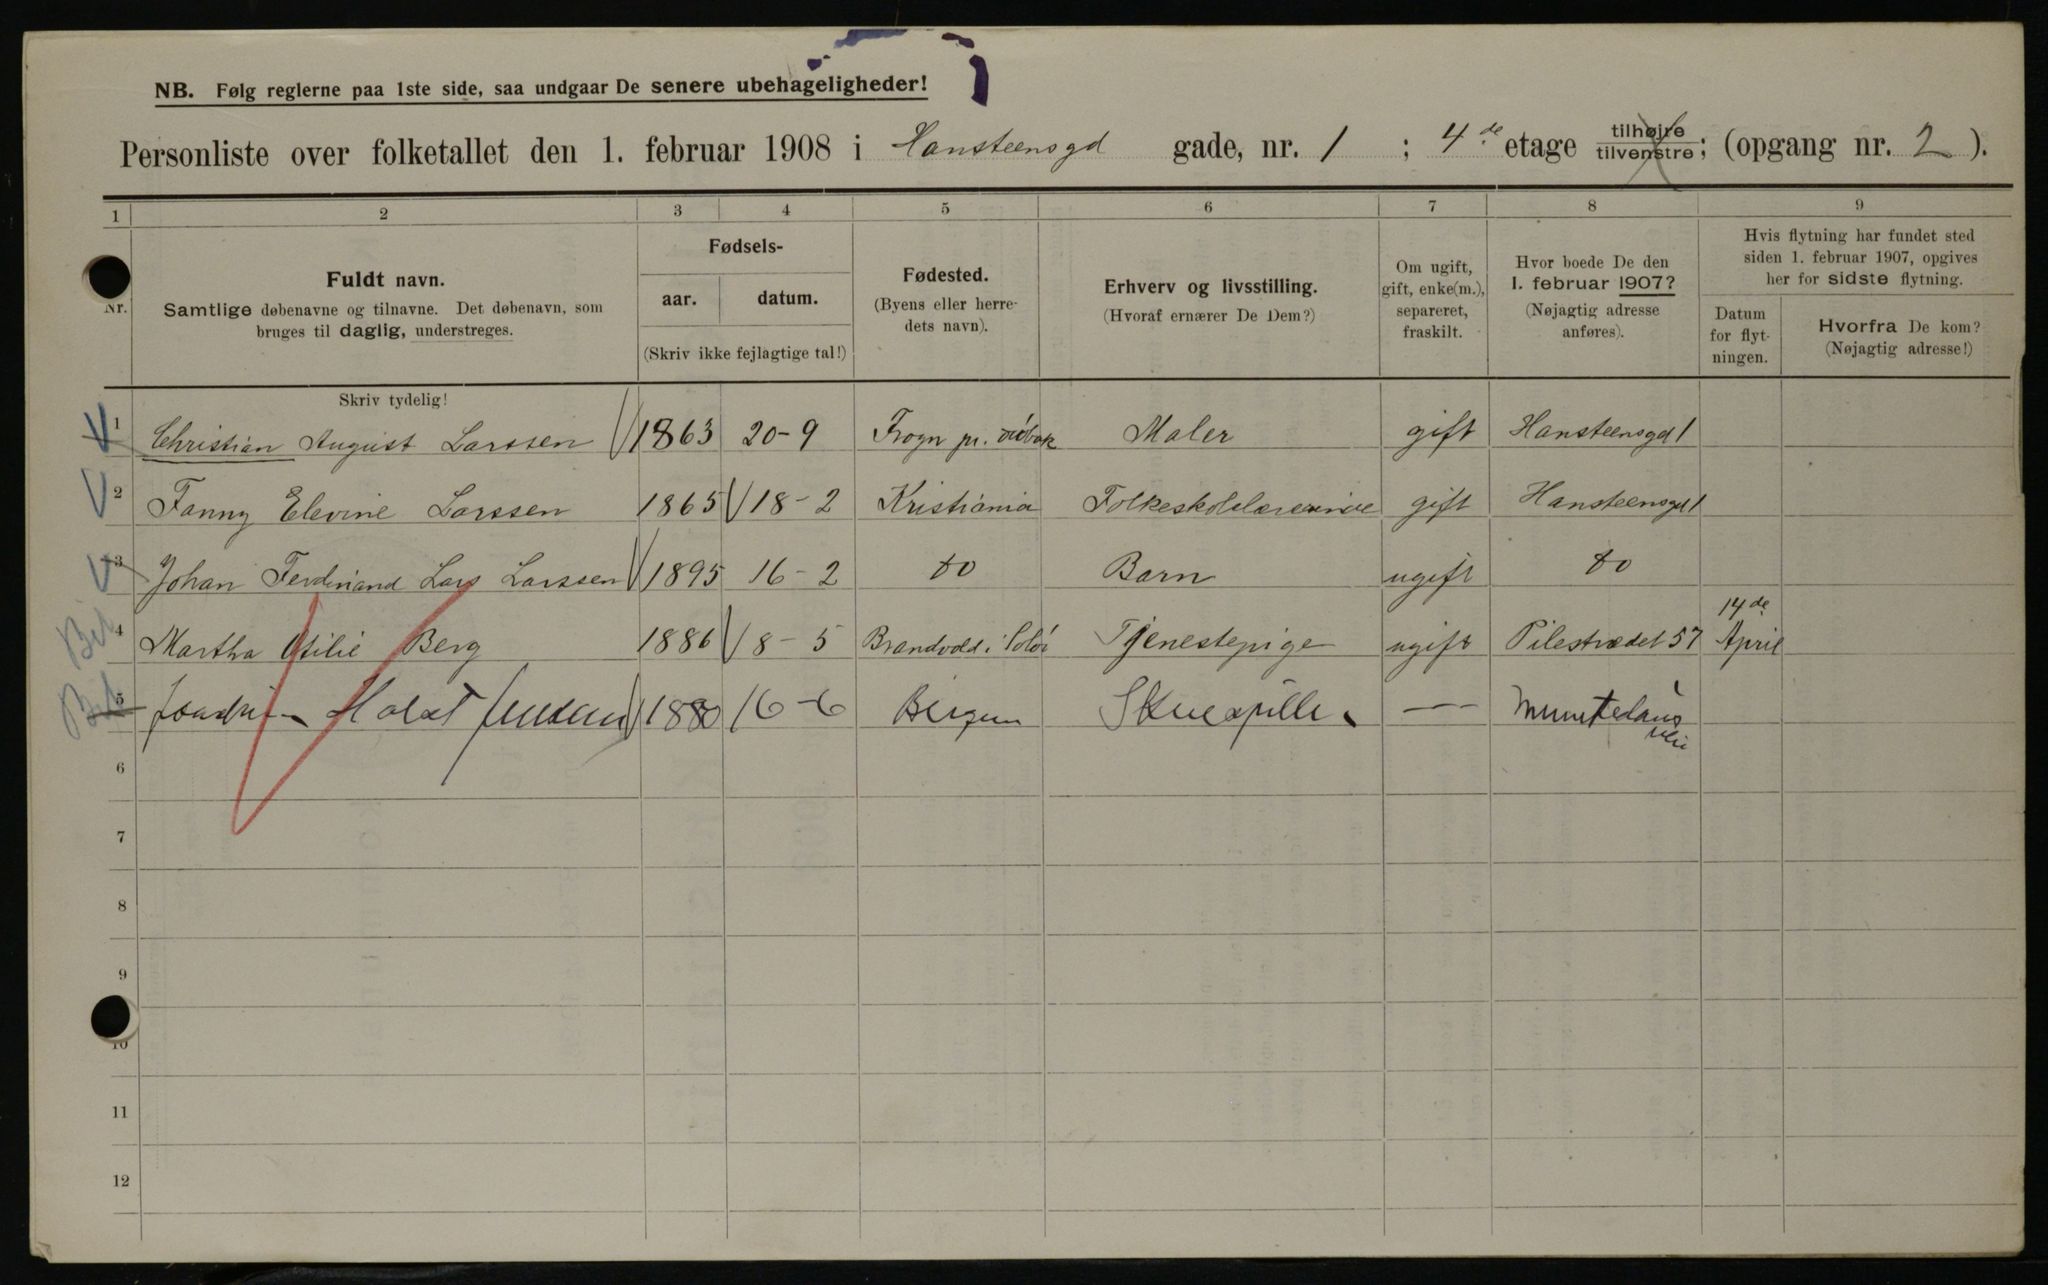 NB. Følg reglerne paa 1ste side, saa undgaar De senere ubehageligheder!
Personliste over folketallet den 1. februar 1908 i Hansteensgd gade, nr. 1 ; 4de etage tilhøjre tilvenstre; (opgang nr. 2 ).
1 2 3 4 5 6 7 8 9
Nr.
Fuldt navn.
Samtlige døbenavne og tilnavne. Det døbenavn, som
bruges til daglig, understreges.
Skriv tydelig!
Fødsels-
aar. datum.
(Skriv ikke fejlagtige tal!)
Fødested.
(Byens eller herre-
dets navn).
Erhverv og livsstilling.
(Hvoraf ernærer De Dem?)
Om ugift,
gift, enke(m.),
separeret,
fraskilt.
Hvor boede De den
1. februar 1907?
(Nøjagtig adresse
anføres).
Hvis flytning har fundet sted
siden 1. februar 1907, opgives
her for sidste flytning.
Datum
for flyt-
ningen.
Hvorfra De kom?
(Nøjagtig adresse!)
1 Christian August Larssen 1863 20-9 Frogn pr. Maler gift Hansteensgd 1
2 Fanny Elevine Larssen 1865 18-2 Kristiania Folkeskolelærerinde gift Hansteensgd 1
3 Johan Ferdinand Lars Larssen 1895 16-2 do Barn ugift do
4 Martha Otilie Berg 1886 8-5 Brandvold i Solør Tjenestepige ugift Pilestrædet 57 14de April
5 Holst Jensen 1880 16-6 Bergen Skuespiller —
6
7
8
9
10
11
12